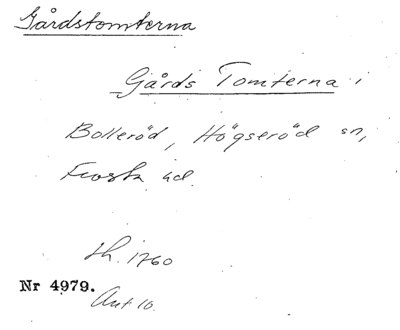 Gårdstomterna
Gårds Tomterna i
Bolleröd, Högseröd sn,
Frosta hd.
sh. 1760
Nr 4979.
Akt 10.